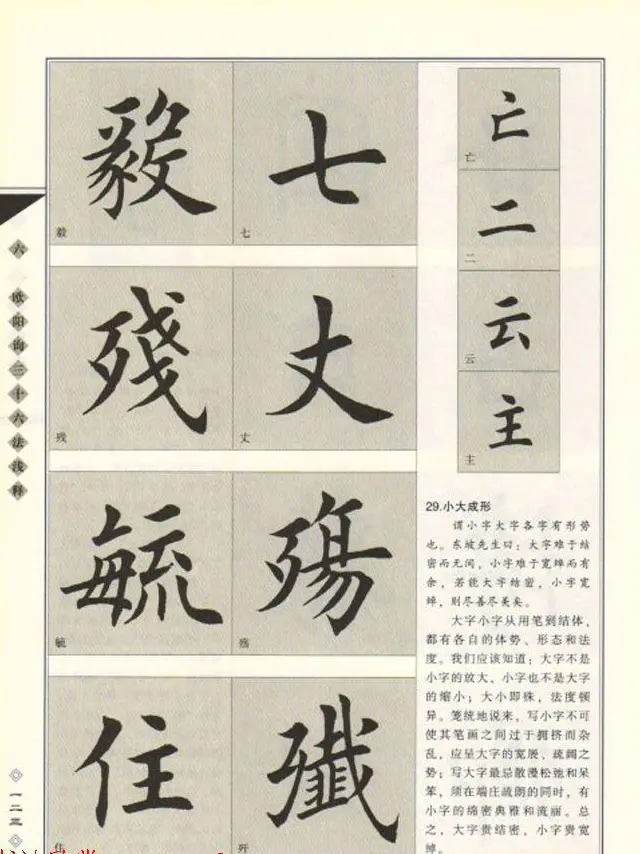 六 欧阳询三十六法浅释
一二三
毅 七
毅 七
殘 丈
残 丈
毓 殤
毓 殇
住 殲
住 歼
亡
亡
二
二
云
云
主
主
29.小大成形
谓小字大字各字有形势
也。东坡先生曰：大字难于结
密而无间，小字难于宽绰而有
余，若能大字结密，小字宽
绰，则尽善尽美矣。
大字小字从用笔到结体，
都有各自的体势、形态和法
度。我们应该知道：大字不是
小字的放大，小字也不是大字
的缩小；大小即殊，法度顿
异。笼统地说来，写小字不可
使其笔画之间过于拥挤而杂
乱，应呈大字的宽展、疏阔之
势；写大字最忌散漫松弛和呆
笨，须在端庄疏朗的同时，有
小字的绵密典雅和流丽。总
之，大字贵结密，小字贵宽
绰。